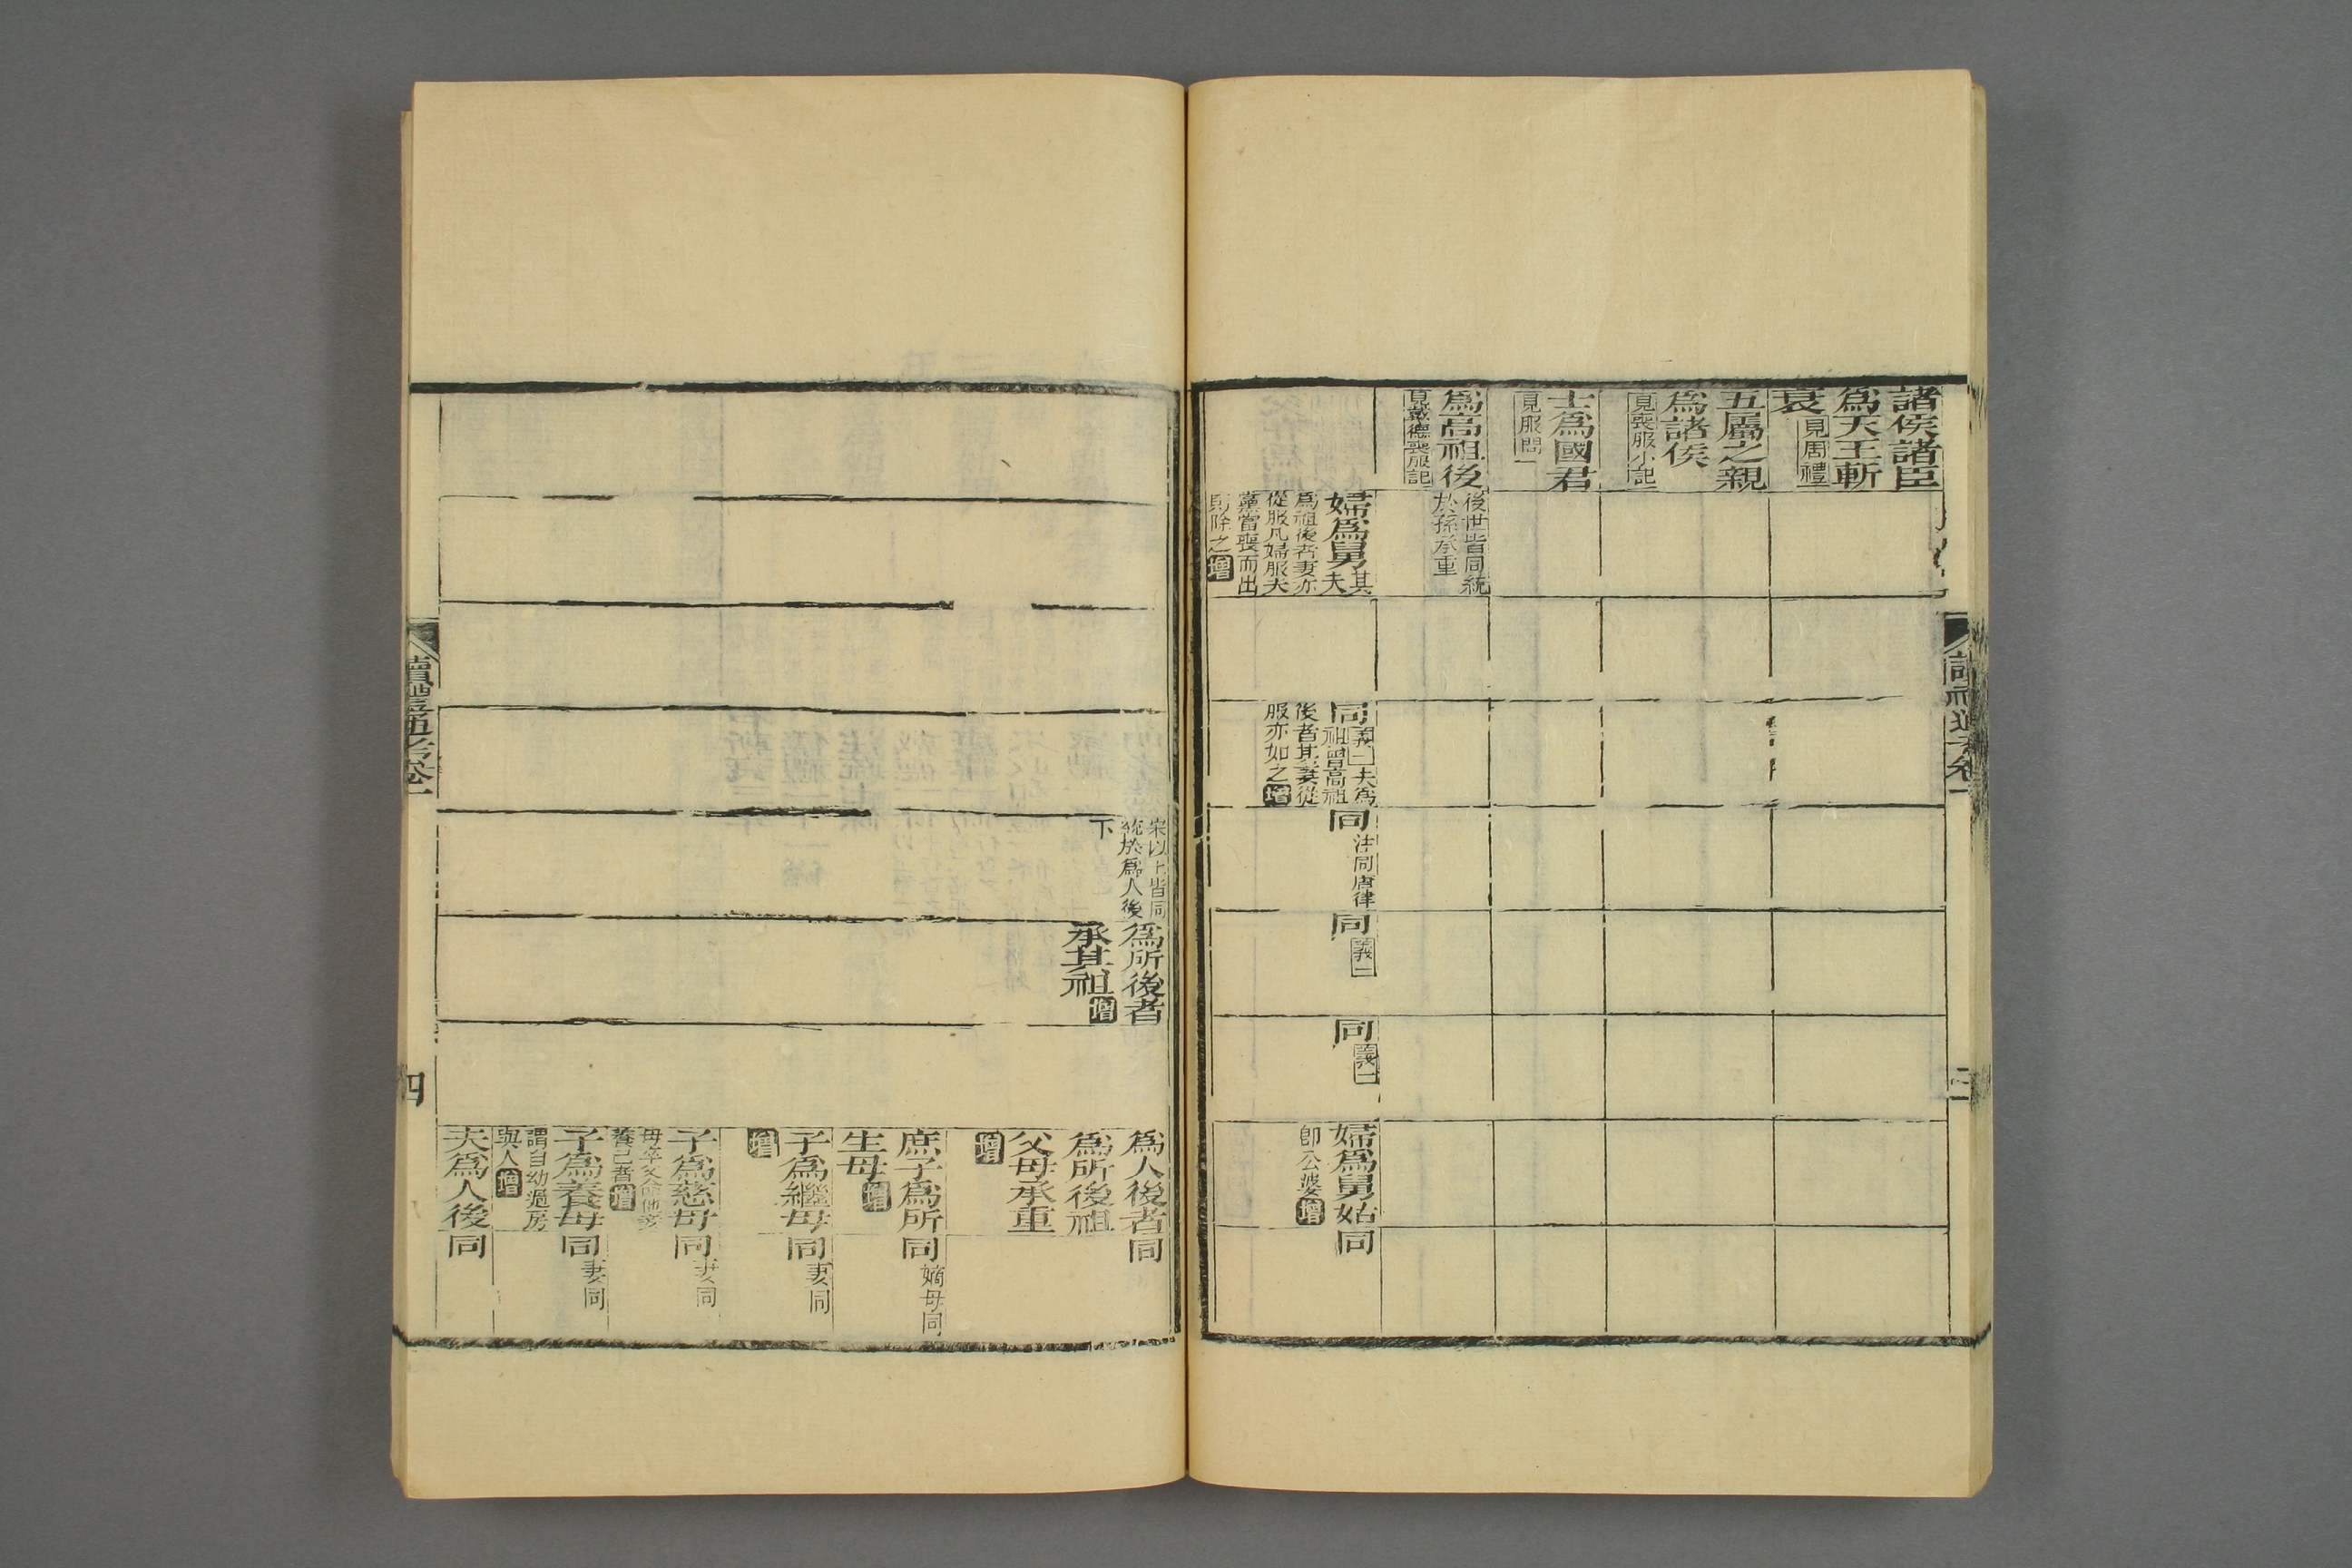 諸侯諸臣
爲天王斬
衰見周禮
五屬之親
爲諸侯
見喪服小記
士爲國君
見服問
爲高祖後
見戴德喪服記
後世皆同統
於孫承重
婦爲舅其夫
爲祖後者妻亦
從服凡婦服夫
黨當喪而出
則除之增
同義一夫爲
祖曾高祖
後者其妻從
服亦如之增
同注同唐律
同義一
同義一
婦爲舅姑
卽公婆增
同
宋以上皆同
統於爲人後
下
爲所後者
承其祖增
爲人後者
爲所後祖
父母承重
增
同
庶子爲所
生母增
同嫡母同
子爲繼母
增
同妻同
子爲慈母
母卒父命他妾
養己者增
同妻同
子爲養母
謂自幼過房
與人增
同妻同
夫爲人後
同
讀禮通考卷一
四